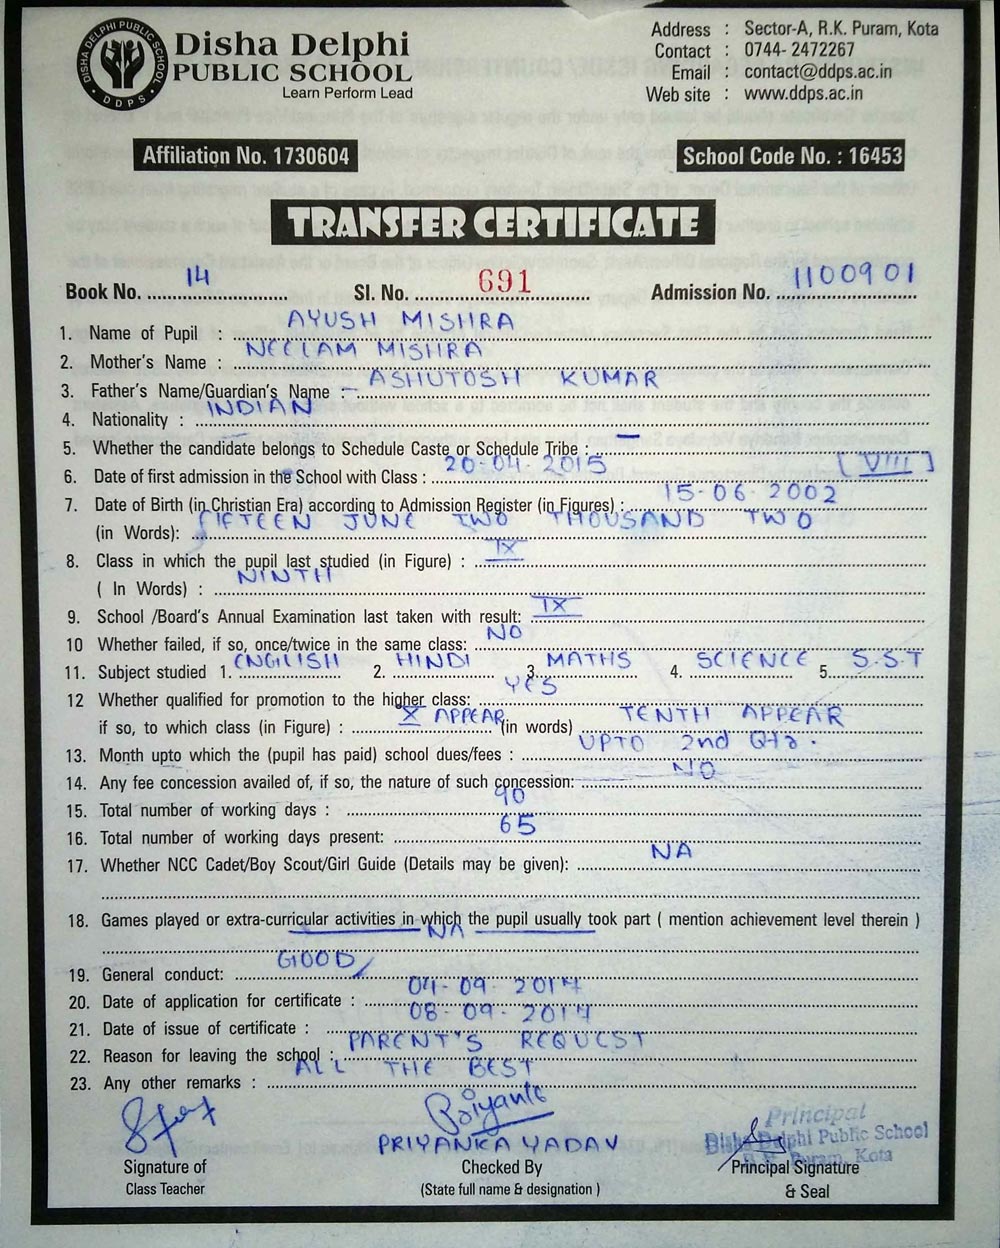 DISHA DELPHI PUBLIC SCHOOL
DDPS
Disha Delphi
PUBLIC SCHOOL
Learn Perform Lead
Address : Sector-A, R.K. Puram, Kota
Contact : 0744- 2472267
Email : contact@ddps.ac.in
Web site : www.ddps.ac.in
Affiliation No. 1730604 School Code No. : 16453
TRANSFER CERTIFICATE
Book No. 14 Sl. No. 691 Admission No. 1100901
1. Name of Pupil : AYUSH MISHRA
2. Mother's Name : NEELAM MISHRA
3. Father's Name/Guardian's Name - ASHUTOSH KUMAR
4. Nationality : INDIAN
5. Whether the candidate belongs to Schedule Caste or Schedule Tribe : -
6. Date of first admission in the School with Class : 20-04-2015 [VIII]
7. Date of Birth (in Christian Era) according to Admission Register (in Figures) : 15-06-2002
(in Words): FIFTEEN JUNE TWO THOUSAND TWO
8. Class in which the pupil last studied (in Figure) : IX
( In Words) : NINTH
9. School /Board's Annual Examination last taken with result: IX
10 Whether failed, if so, once/twice in the same class: NO
11. Subject studied 1. ENGLISH 2. HINDI 3. MATHS 4. SCIENCE 5. S.S.T
12 Whether qualified for promotion to the higher class: YES
if so, to which class (in Figure) : X APPEAR (in words) TENTH APPEAR
13. Month upto which the (pupil has paid) school dues/fees : UPTO 2nd Qtr.
14. Any fee concession availed of, if so, the nature of such concession: NO
15. Total number of working days : 90
16. Total number of working days present: 65
17. Whether NCC Cadet/Boy Scout/Girl Guide (Details may be given): NA
18. Games played or extra-curricular activities in which the pupil usually took part ( mention achievement level therein )
NA
19. General conduct: GOOD
20. Date of application for certificate : 04-09-2017
21. Date of issue of certificate : 08-09-2017
22. Reason for leaving the school : PARENT'S REQUEST
23. Any other remarks : ALL THE BEST
Priyanka
PRIYANKA YADAV
Principal
Disha Delphi Public School
R.K. Puram, Kota
Signature of Checked By Principal Signature
Class Teacher (State full name & designation ) & Seal